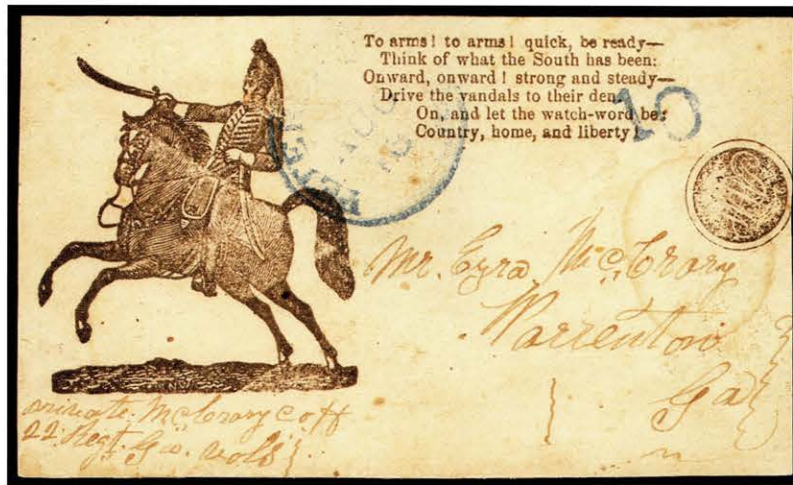 To arms! to arms! quick, be ready—
Think of what the South has been:
Onward, onward! strong and steady—
Drive the vandals to their den.
On, and let the watch-word be:
Country, home, and liberty!
10
Mr. Ezra McCrary
Warrenton
Ga
private McCrary Co H
22 Regt. Ga. vols